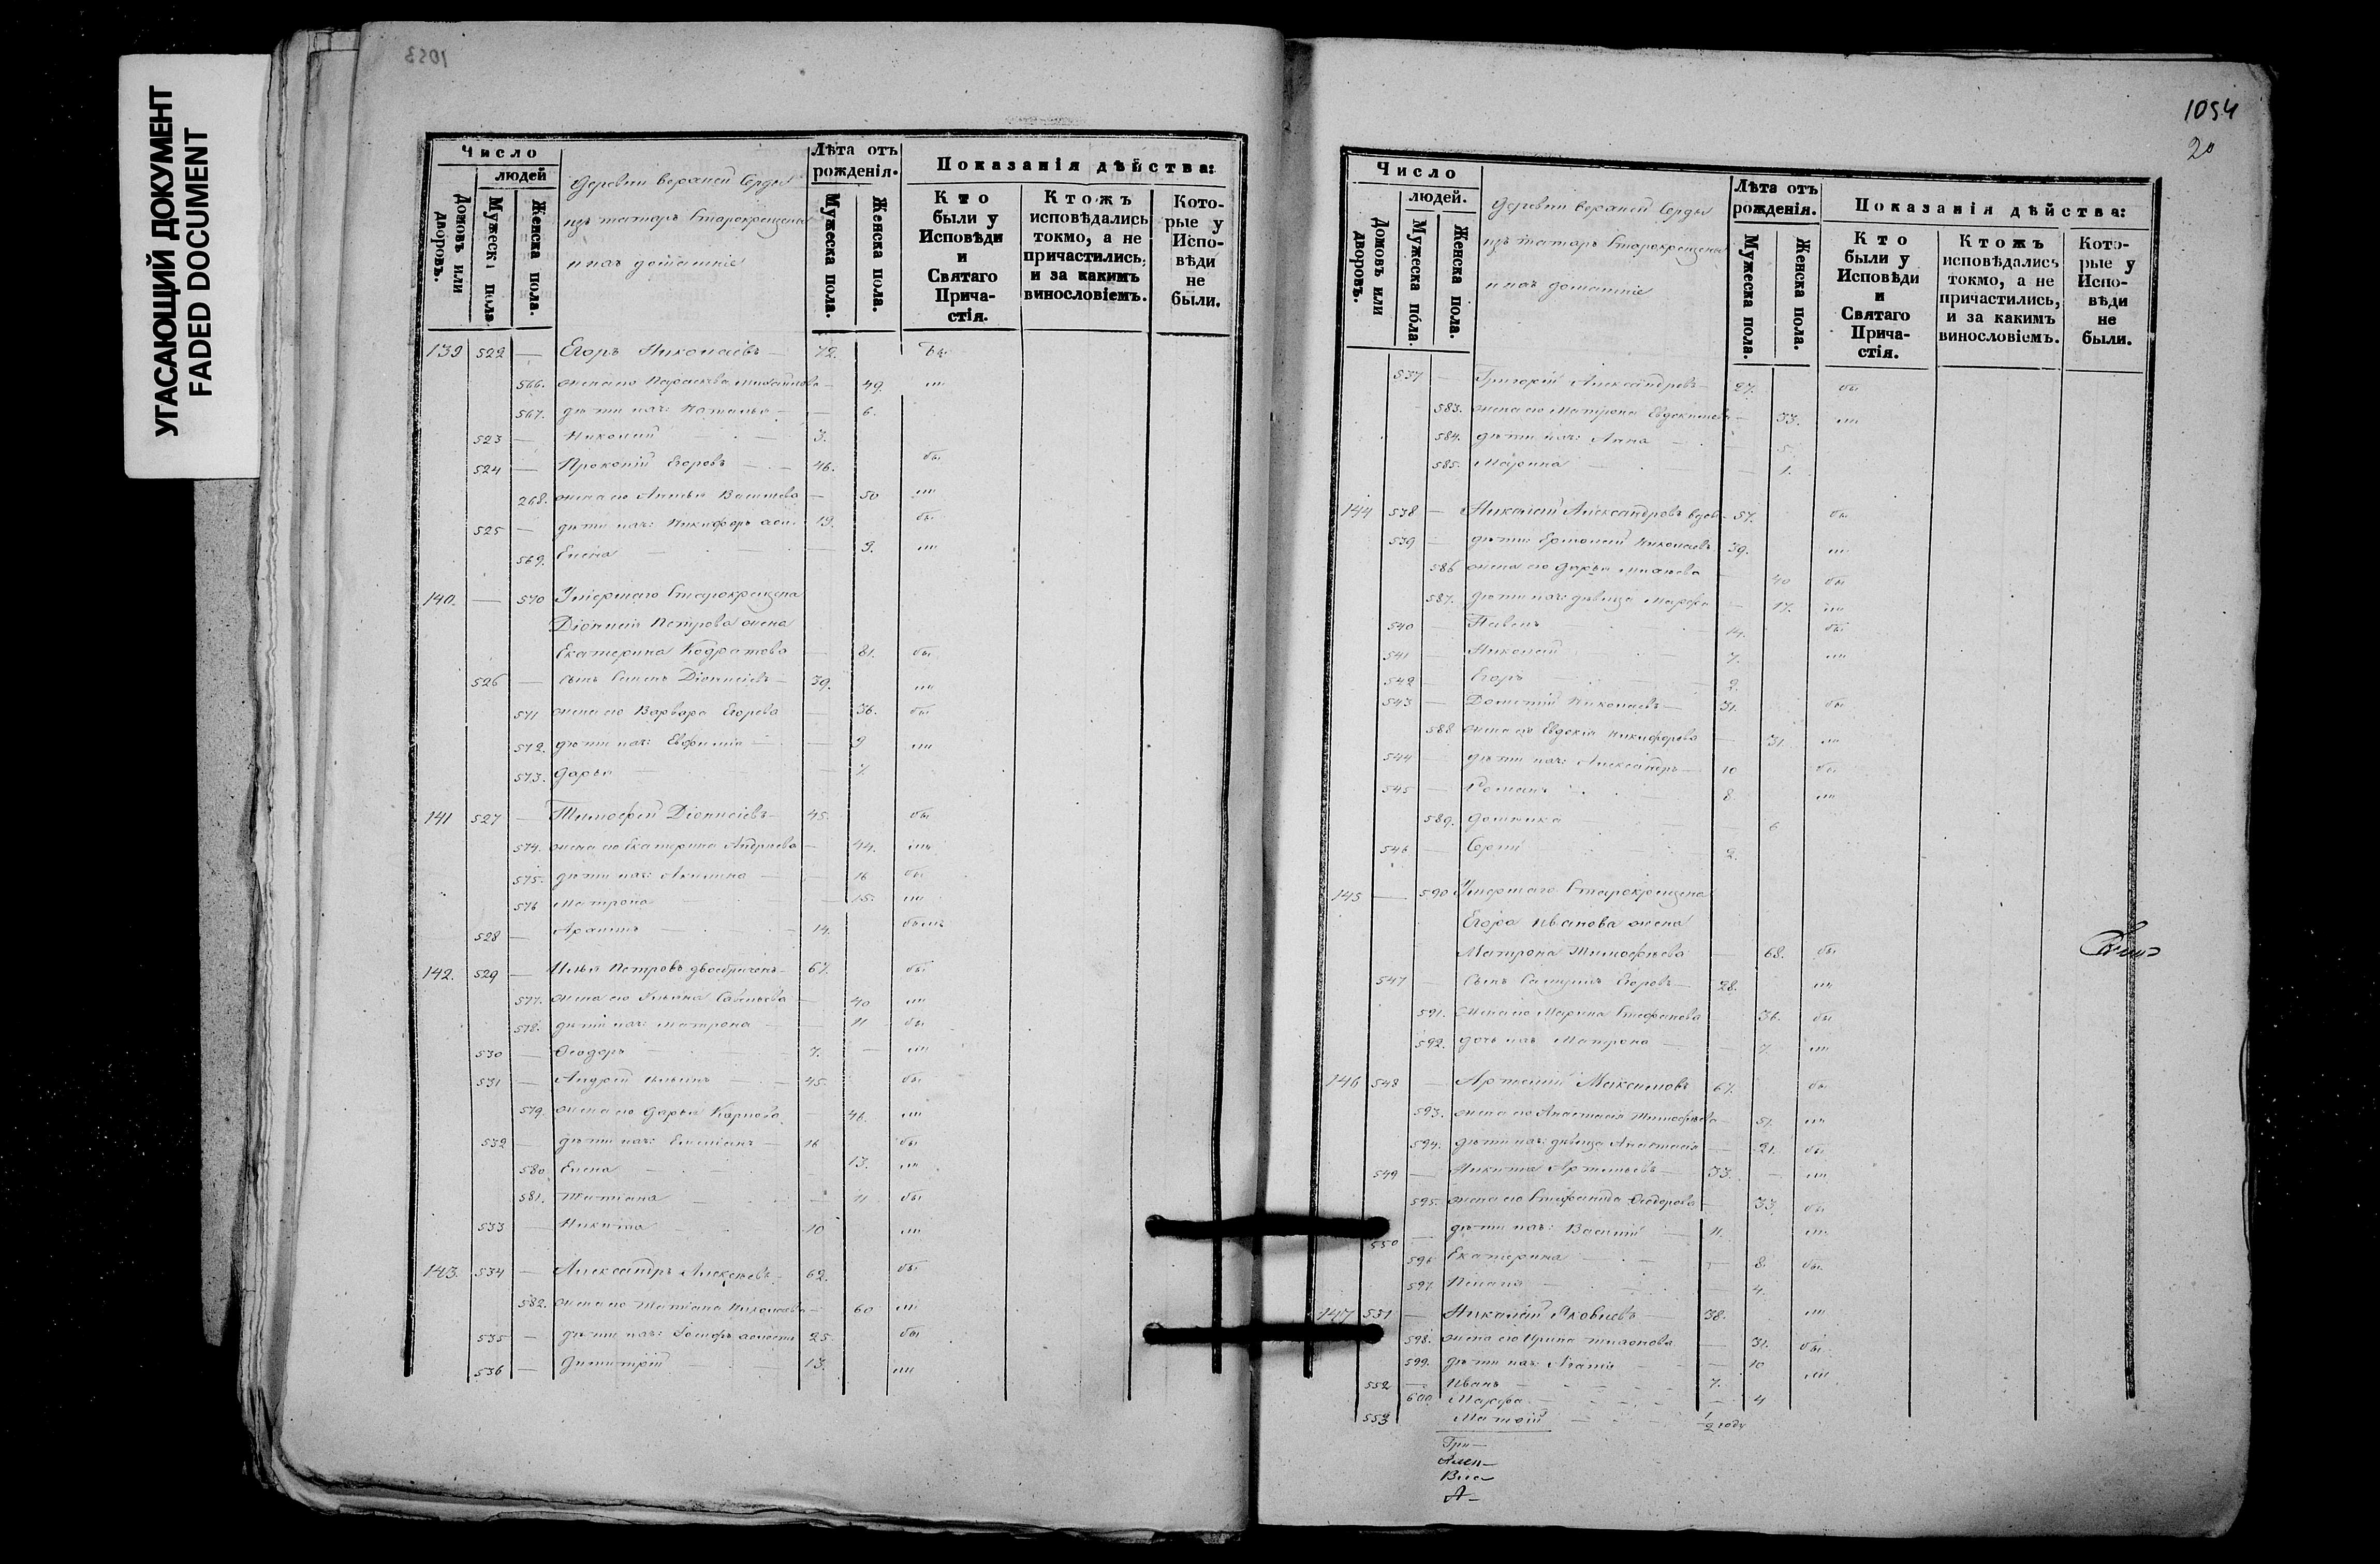 УГАСАЮЩИЙ ДОКУМЕНТ
FADED DOCUMENT
1053
Число
людей
Домовъ или дворовъ.
Мужеска пола.
Женска пола.
Деревни верхней Серды
изъ татаръ Старокрещены
и ихъ домашніе
Лѣта отъ рожденія.
Мужеска пола.
Женска пола.
Показанія дѣйства:
Кто были у Исповѣди и Святаго Прича-стія.
Ктожъ исповѣдались токмо, а не причастились, и за какимъ винословіемъ.
Кото-рые у Испо-вѣди не были.
139 522 — Егоръ Николаевъ — 72. бы
566. жена его Параскева Михайлова — 49. ли
567. дѣти ихъ: Наталья — — 6.
523 — Николай — 3.
524 — Прокопій Егоровъ — 46. бы
268. жена его 50 ли
525 — дѣти ихъ: Никифоръ 19. бы
569. Елена — — 9. ли
140. — 570 Умершаго Старокрещена
Діонисія Петрова жена
Екатерина — 81. бы
526 — сынъ Діонисіевъ — 39. ли
571 жена его Варвара Егорова — 36. бы
572. дѣти ихъ: Евфимія — — 9 ли
573. Дарья — — 7
141 527 — Тимофей Діонисіевъ — 45. бы
574. жена его Екатерина Андреева — 44. ли
575. дѣти ихъ: Акилина — — 16 бы
576 Матрона — — 15. ли
528 — 14. были
142. 529 — Илья Петровъ 67. бы
577. жена его 40 ли
578. дѣти ихъ: Матрона — — 11 бы
530 — Ѳеодоръ — 7. — ли
531 — Андрей Ильинъ — 45. бы
579. жена его Дарья Карпова — 46. ли
532 — дѣти ихъ: Емиліанъ — 16 бы
580. Елена — 13. ли
581. Татіана — — 11 бы
533 — Никита — 10 ли
143. 534 — Александръ Алексѣевъ — 62. бы
582. жена его Татіана Николаева — 60 ли
535 — дѣти ихъ: Іосифъ 25. бы
536 — Димитрій — 13. ли
1054
20
Число
людей.
Домовъ или дворовъ.
Мужеска пола.
Женска пола.
Деревни верхней Серды
изъ татаръ Старокрещены
и ихъ домашніе
Лѣта отъ рожденія.
Мужеска пола.
Женска пола.
Показанія дѣйства:
Кто были у Исповѣди и Святаго Прича-стія.
Ктожъ исповѣдались токмо, а не причастились, и за какимъ винословіемъ.
Кото-рые у Испо-вѣди не были.
537 — Григорій Александровъ — 27. бы
583. жена его Матрона Евдокимова — 33. ли
584. дѣти ихъ: Анна — — 5.
585. Марина — — 1.
144 538 — Николай Александровъ вдовъ 57. бы
539 — дѣти: Ермолай Николаевъ 39. ли
586 жена его Дарья — 40 бы
587. дѣти ихъ: дѣвица Марфа — 17. ли
540 — Павелъ — 14. бы
541 — Николай — 7. ли
542 — Егоръ — 2.
543 — Николаевъ — 31. бы
588 жена его Евдокія Никифорова — 31 ли
544 — дѣти ихъ: Александръ — 10 бы
545 — Романъ — 8. ли
589. Домника — — 6
546 — Сергій — 2.
145 — 590 Умершаго Старокрещена
Егора Иванова жена
Матрона Тимофѣева — 68. бы
547 — Сынъ Егоровъ — 28. ли
591. жена его Марина Стефанова — 36. бы
592. дочь ихъ Матрона — — 7. ли
146 548 — Артемій Максимовъ 67. бы
593. жена его Анастасія Тимофѣева — 51. ли
594. дѣти ихъ: дѣвица Анастасія — 21. бы
549 — Никита Артемьевъ — 33. — ли
595. жена его Стефанида Ѳеодорова — 33 бы
550 — дѣти ихъ: Василій — 11. ли
596 Екатерина — — 8. бы
597. — 4.
147 551 — Николай Яковлевъ — 38. ли
598. жена его Ирина — 31. бы
599. дѣти ихъ: — 10 ли
552 — Иванъ — 7.
600 Марфа — — 4
553 ½ году
Гри—
А—